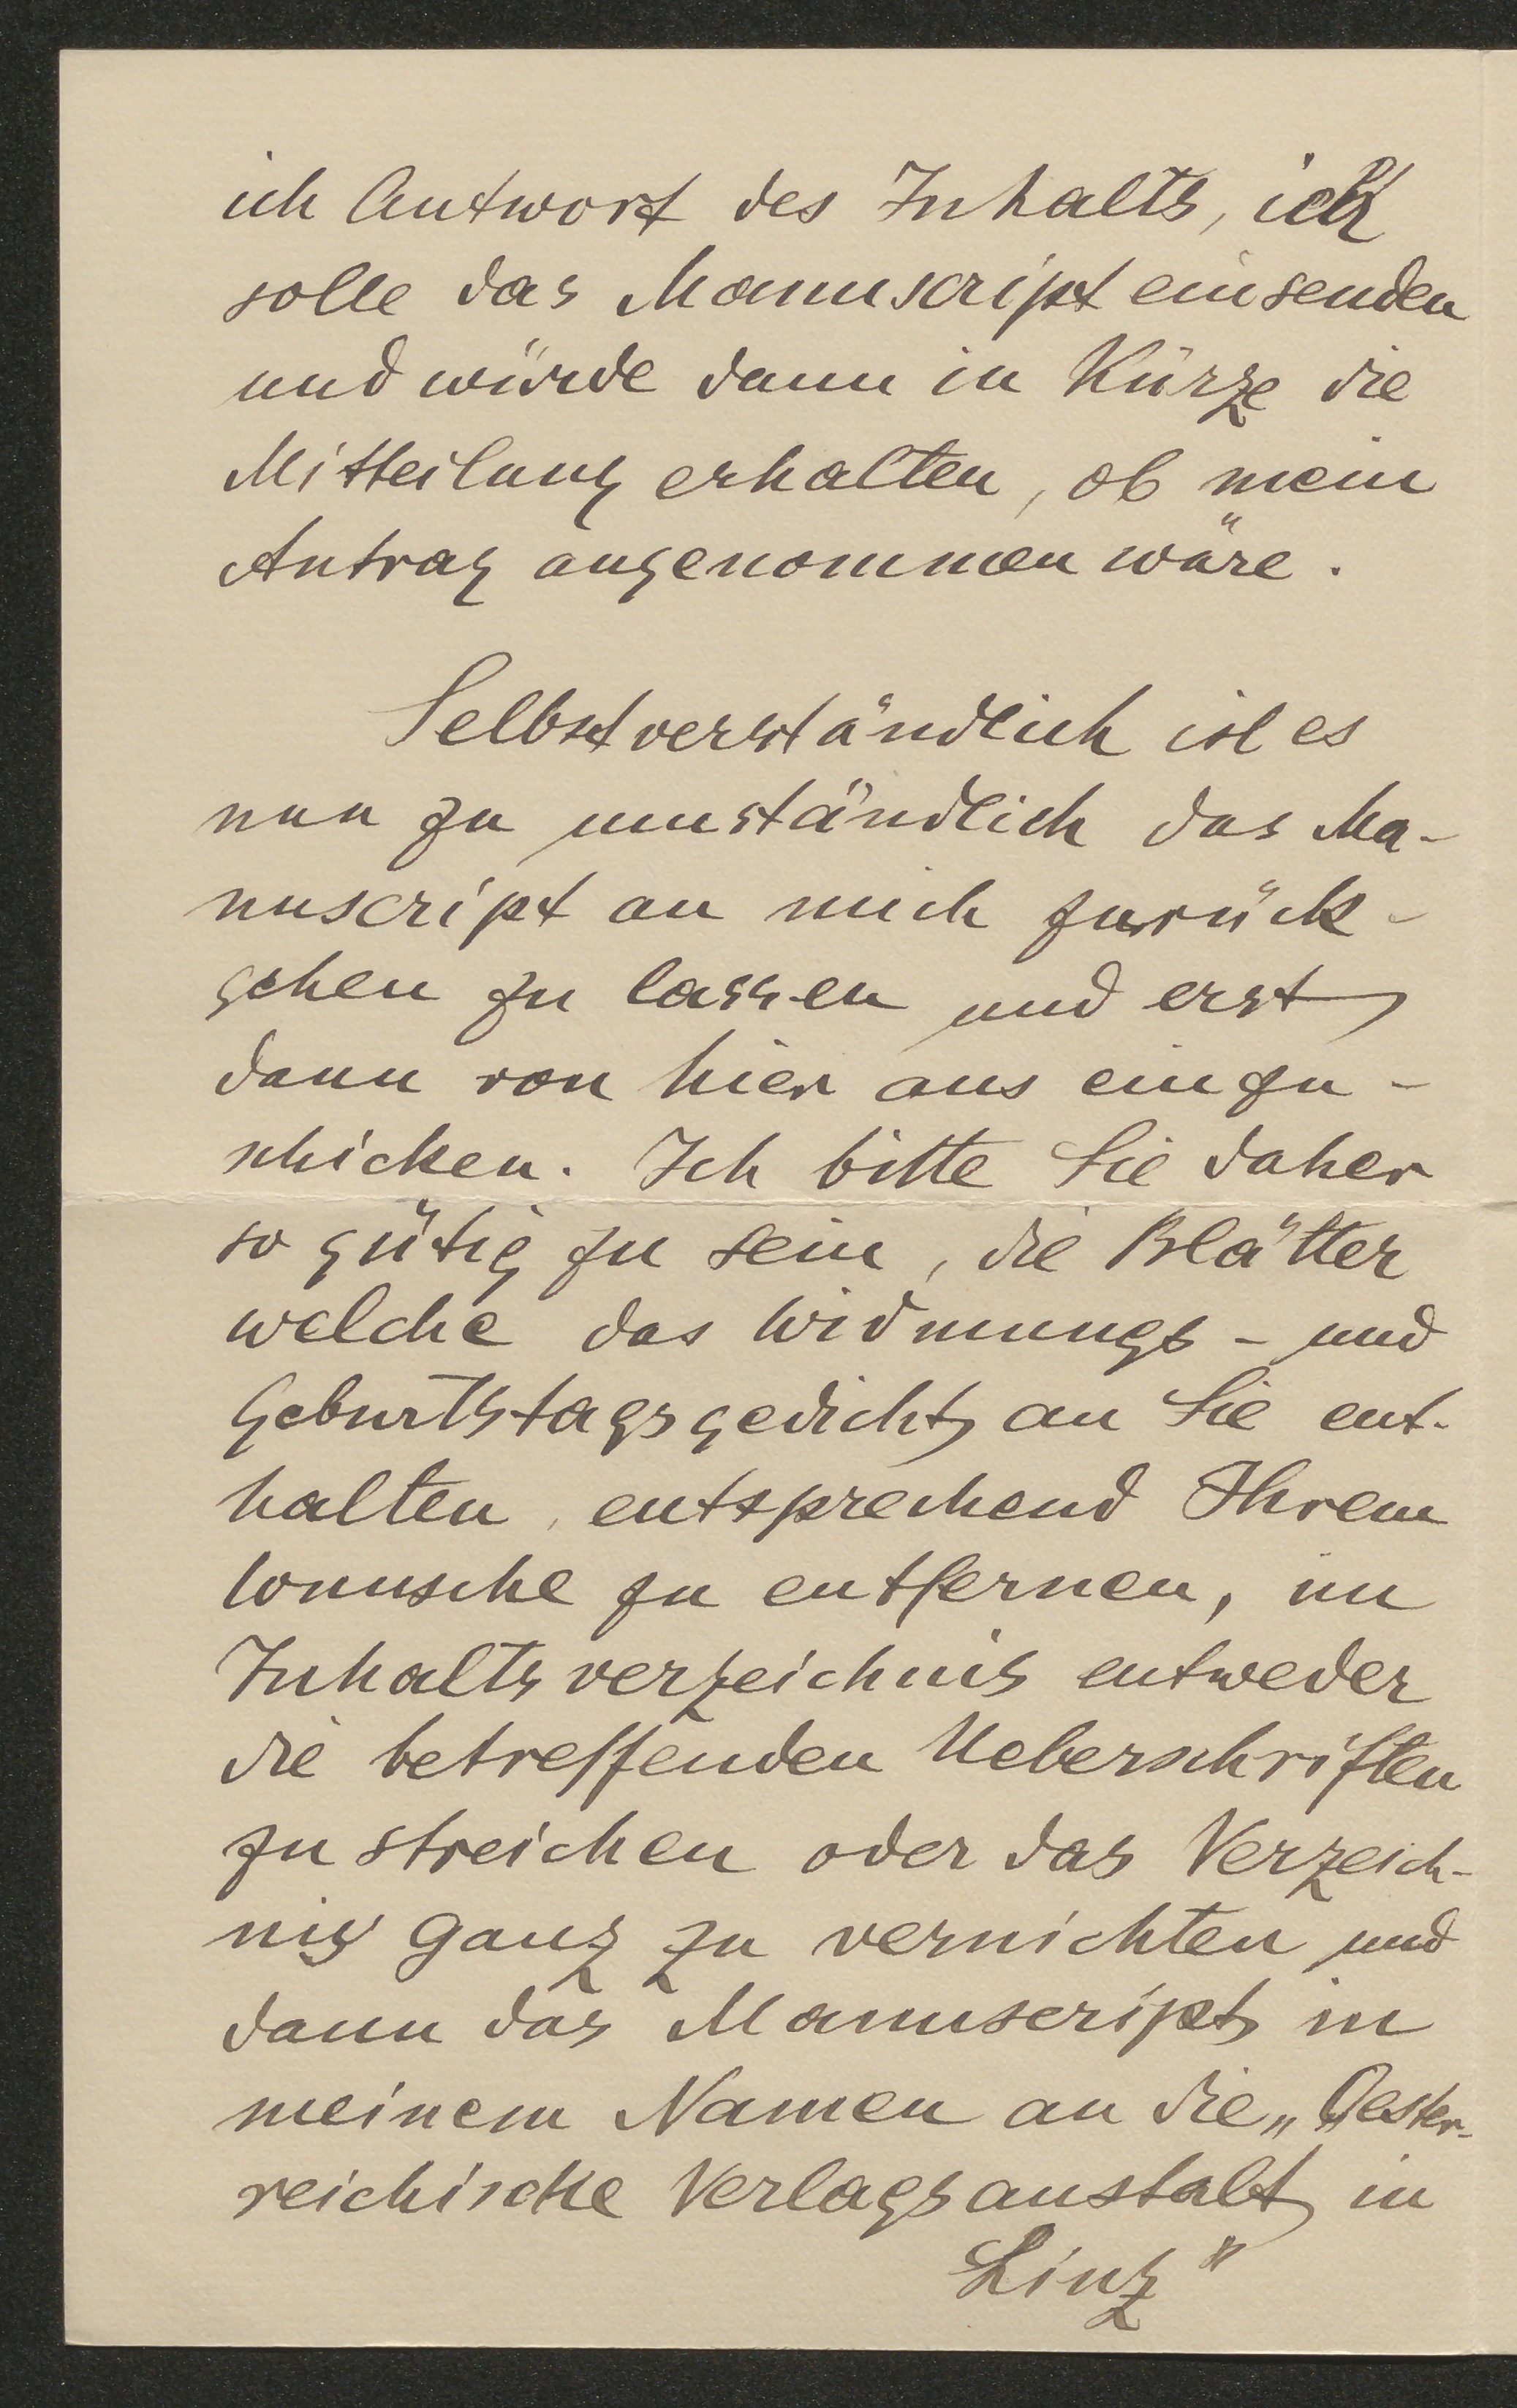 ich Antwort des Inhalts, ich
solle das Manuscript einsenden
und würde dann in Kürze die
Mitteilung erhalten, ob mein
Antrag angenommen wäre.
Selbstverständlich ist es
nun zu umständlich das Ma-
nuscript an mich zurück-
gehen zu lassen und erst
dann von hier aus einzu-
schicken. Ich bitte Sie daher
so gütig zu sein, die Blätter
welche das Widmungs- und
Geburtstagsgedicht an Sie ent-
halten, entsprechend Ihrem
Wunsche zu entfernen, im
Inhaltsverzeichnis entweder
die betreffenden Ueberschriften
zu streichen oder das Verzeich-
nis ganz zu vernichten und
dann das Manuscript in
meinem Namen an die „Oester-
reichische Verlagsanstalt in
Linz"